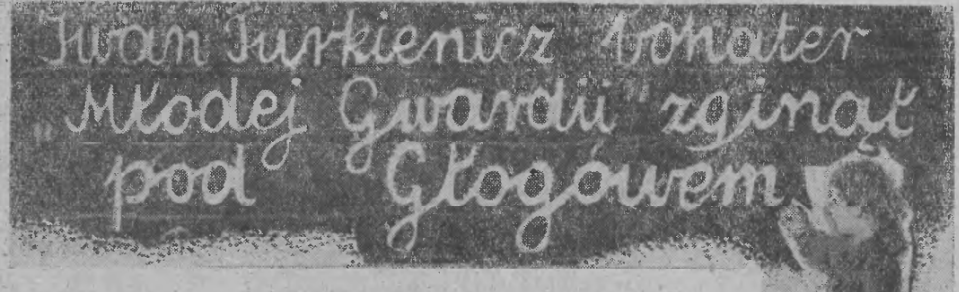 Iwan Turkienicz bohater
"Młodej Gwardii" zginął
pod Głogówem